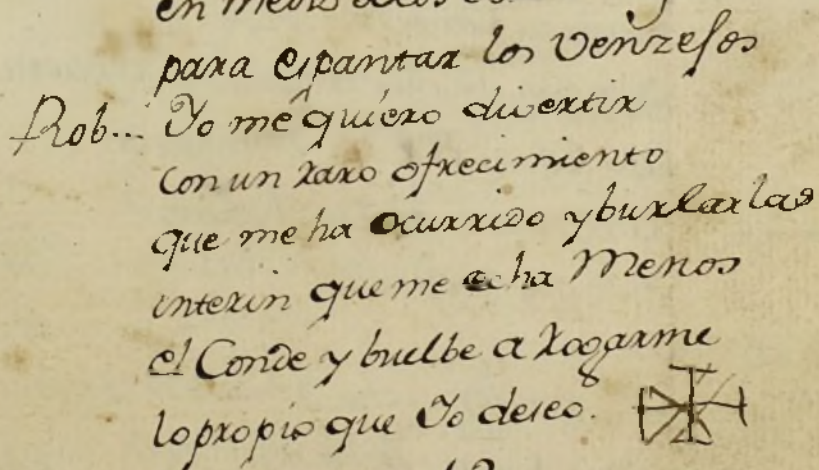 en medio de los
para espantar los Venzesos
Rob... Yo me quiero divertir
con un raro ofrecimiento
que me ha ocurrido y burlarlas
interin que me echa Menos
el Conde y buelbe a rogarme
lo propio que Yo deseo.